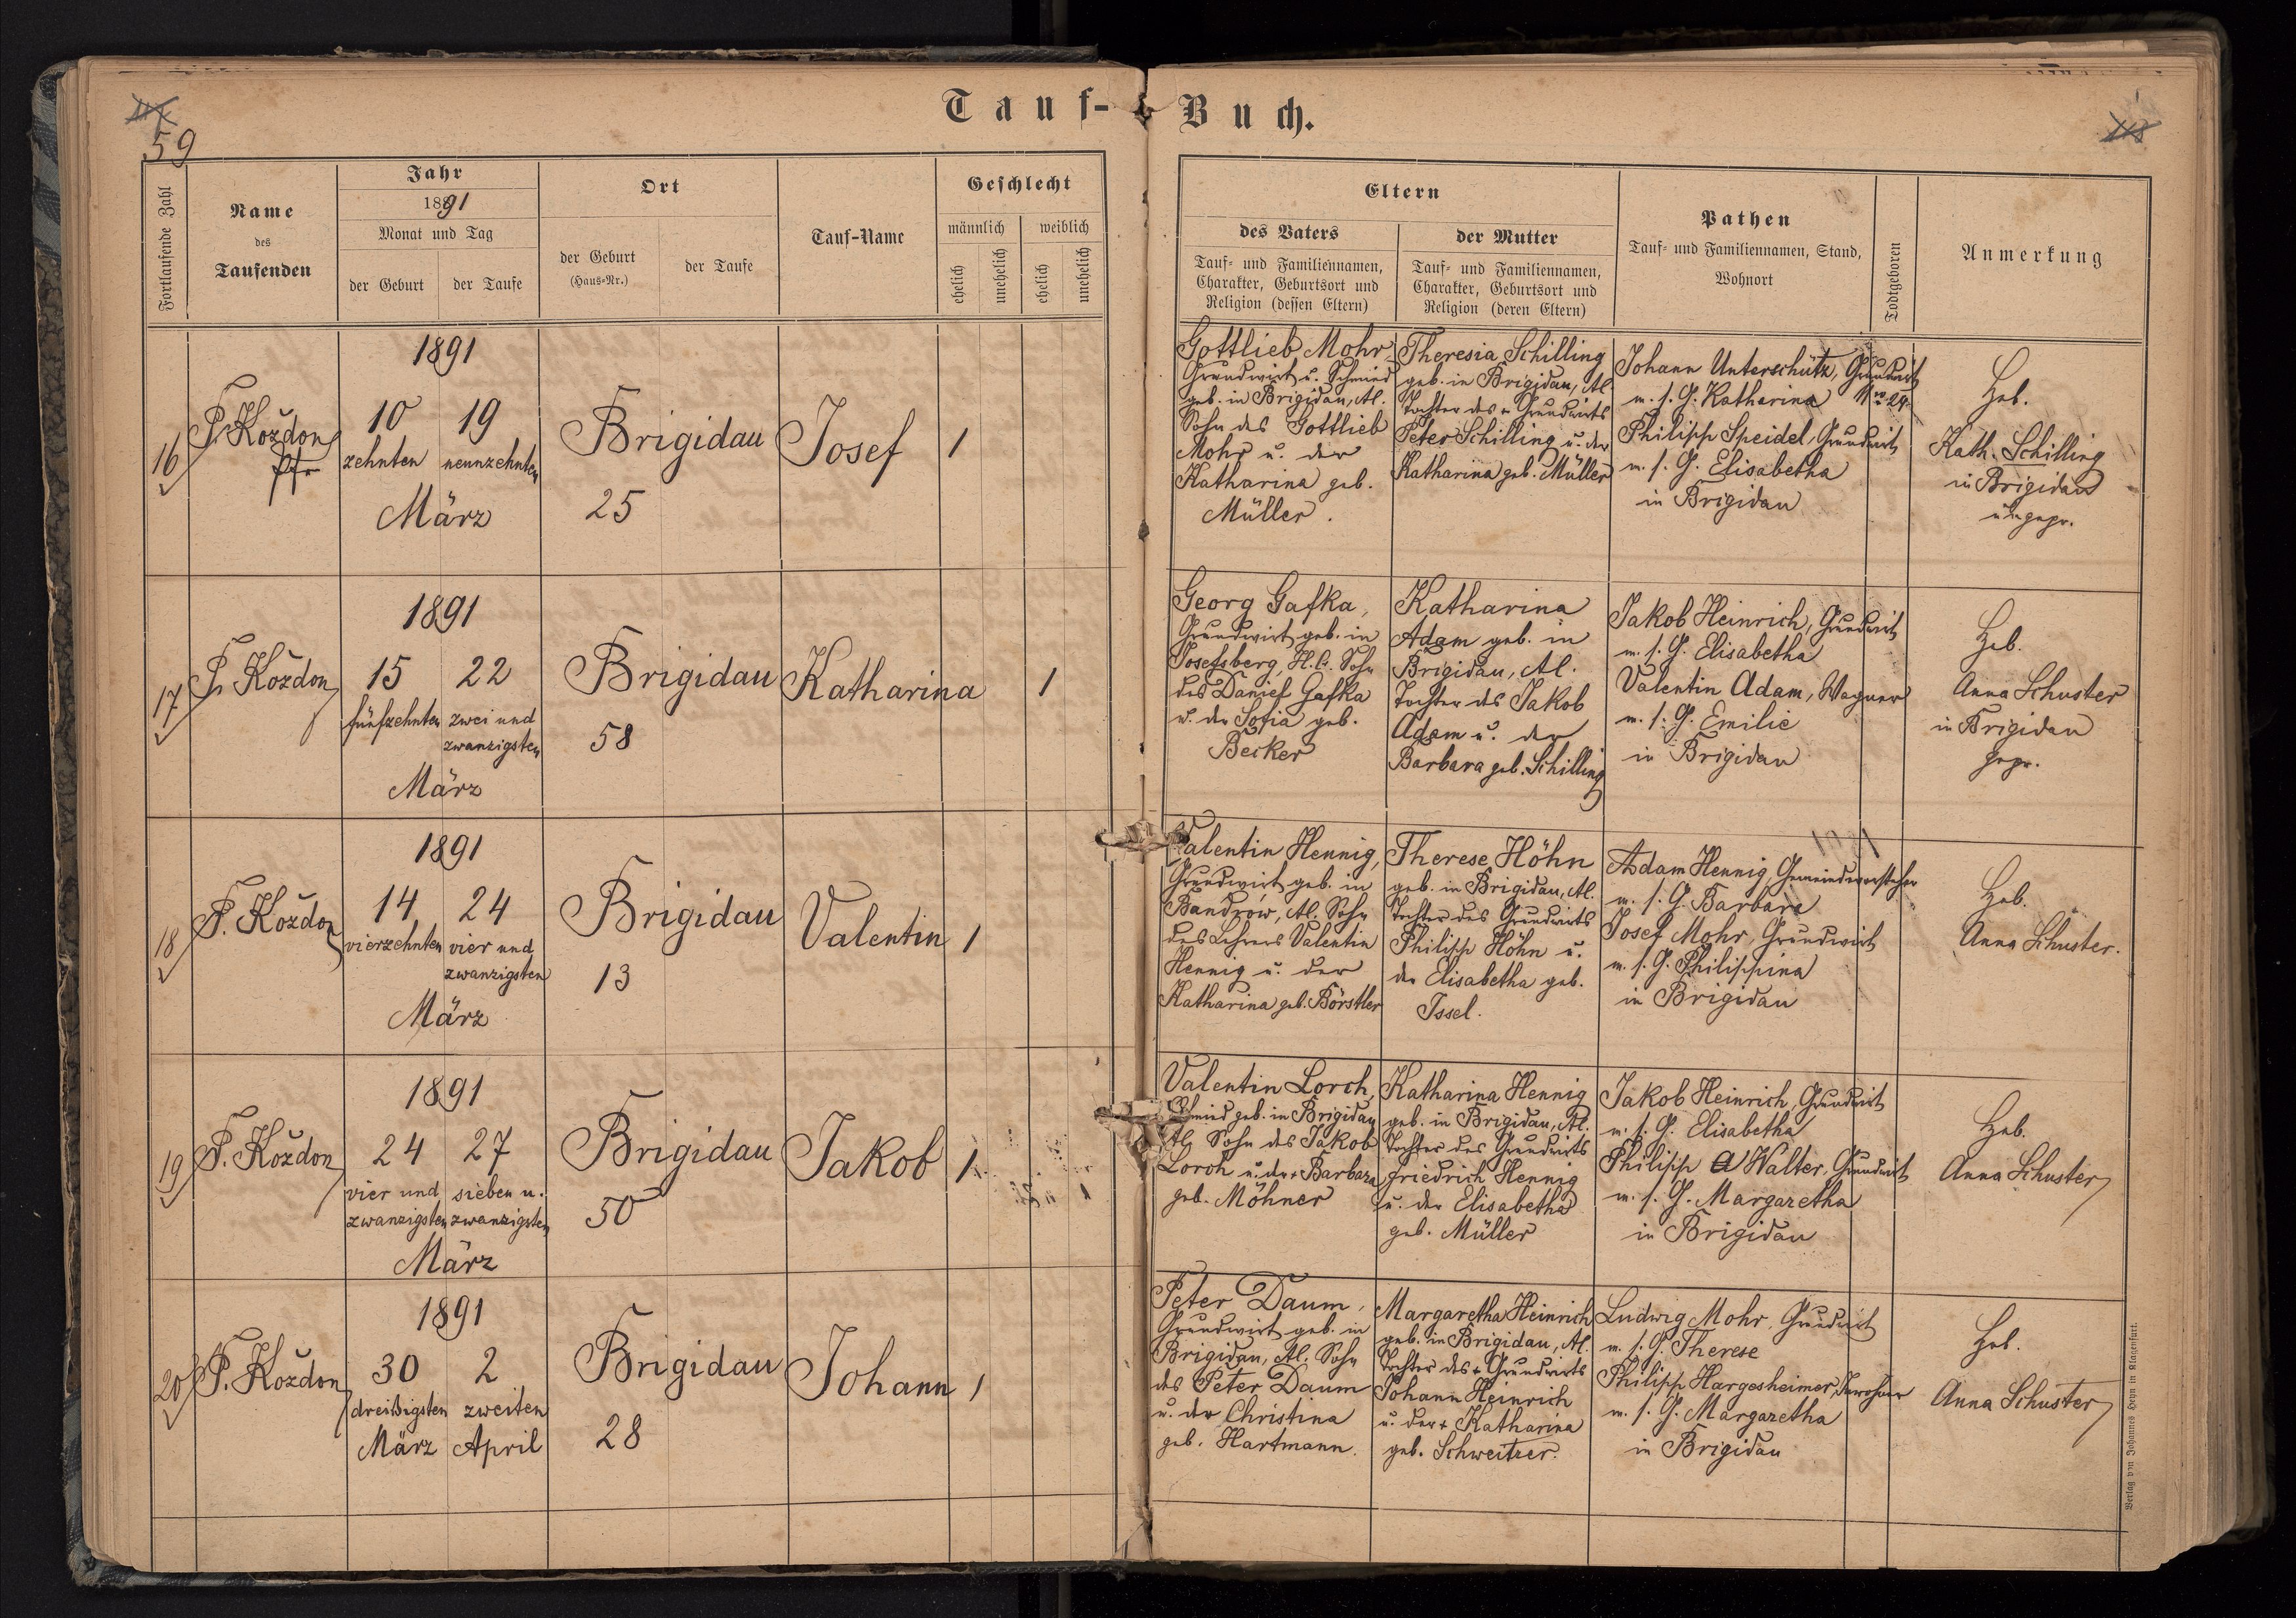 Tauf-Buch.
59
118
Fortlaufende Zahl
Name
des
Taufenden
Jahr
1891
Monat und Tag
der Geburt
der Taufe
Ort
der Geburt
(Haus-Nr.)
der Taufe
Tauf-Name
Geschlecht
männlich
weiblich
ehelich
unehelich
ehelich
unehelich
Eltern
des Vaters
Tauf- und Familiennamen,
Charakter, Geburtsort und
Religion (dessen Eltern)
der Mutter
Tauf- und Familiennamen,
Charakter, Geburtsort und
Religion (deren Eltern)
Pathen
Tauf- und Familiennamen, Stand,
Wohnort
Todtgeboren
Anmerkung
16
P. Koždon
Pfr
1891
10 19
zehnten neunzehnten
März
Brigidau
25
Josef
1
Gottlieb Mohr,
Grundwirt u. Schmied
geb. in Brigidau, Al.
Sohn des Gottlieb
Mohr u. der
Katharina geb.
Müller.
Theresia Schilling
geb. in Brigidau, Al.
Tochter des + Grundwirts
Peter Schilling u. der
Katharina geb. Müller
Johann Unterschütz, Grundwirt
m. s. G. Katharina Nro 24.
Philipp Speidel, Grundwirt
m. s. G. Elisabetha
in Brigidau
Heb.
Kath. Schilling
in Brigidau
ungepr.
17
P. Koždon
1891
15 22
fünfzehnten zwei und
zwanzigsten
März
Brigidau
58
Katharina
1
Georg Gafka,
Grundwirt geb. in
Josefsberg, H.C. Sohn
des Daniel Gafka
u. der Sofia geb.
Becker
Katharina
Adam geb. in
Brigidau, Al.
Tochter des Jakob
Adam u. der
Barbara geb. Schilling
Jakob Heinrich, Grundwirt
m. s. G. Elisabetha
Valentin Adam, Wagner
m. s. G. Emilie
in Brigidau
Heb.
Anna Schuster
in Brigidau
gepr.
18
P. Koždon
1891
14 24
vierzehnten vier und
zwanzigsten
März
Brigidau
13
Valentin
1
Valentin Hennig,
Grundwirt geb. in
Bandrów, Al. Sohn
des Lehrers Valentin
Hennig u. der
Katharina geb. Börstler
Therese Höhn
geb. in Brigidau, Al.
Tochter des Grundwirts
Philipp Höhn u.
der Elisabetha geb.
Issel.
Adam Hennig, Gemeindevorsteher
m. s. G. Barbara
Josef Mohr, Grundwirt
m. s. G. Philippina
in Brigidau
Heb.
Anna Schuster.
19
P. Koždon
1891
24 27
vier und sieben u.
zwanzigsten zwanzigsten
März
Brigidau
50
Jakob
1
Valentin Lorch,
Schmied geb. in Brigidau
Al. Sohn des Jakob
Lorch u. der + Barbara
geb. Möhner
Katharina Hennig
geb. in Brigidau, Al.
Tochter des Grundwirts
Friedrich Hennig
u. der Elisabetha
geb. Müller
Jakob Heinrich, Grundwirt
m. s. G. Elisabetha
Philipp Walter, Grundwirt
m. s. G. Margaretha
in Brigidau
Heb.
Anna Schuster
20
P. Koždon
1891
30 2
dreißigsten zweiten
März April
Brigidau
28
Johann
1
Peter Daum,
Grundwirt geb. in
Brigidau, Al. Sohn
des Peter Daum
u. der Christina
geb. Hartmann.
Margaretha Heinrich
geb. in Brigidau, Al.
Tochter des + Grundwirts
Johann Heinrich
u. der + Katharina
geb. Schweitzer.
Ludwig Mohr, Grundwirt
m. s. G. Therese
Philipp Hargesheimer, Inwohner
m. s. G. Margaretha
in Brigidau
Heb.
Anna Schuster
Verlag von Johannes Heyn in Klagenfurt.